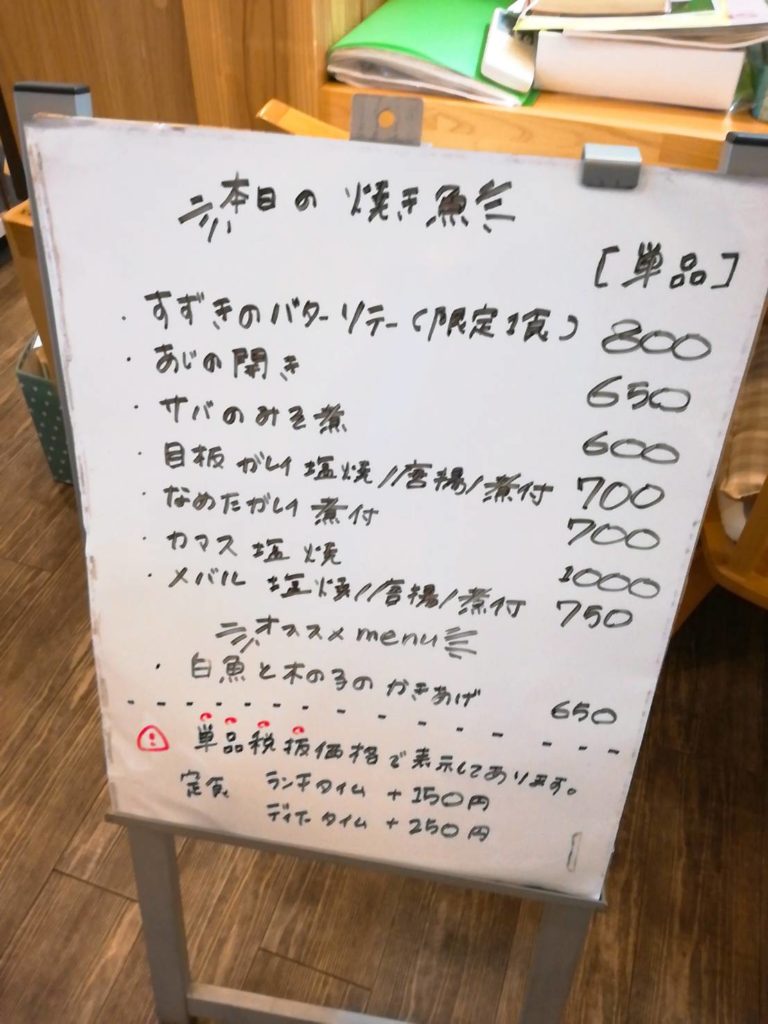 本日の焼き魚
[単品]
・すずきのバターソテー(限定1食) 800
・あじの開き 650
・サバのみそ煮 600
・目板がレイ塩焼/唐揚/煮付 700
・なめたがレイ煮付 700
・カマス塩焼 1000
・メバル 塩焼/唐揚/煮付 750
オススメmenu
・白魚と木の子のかきあげ 650
単品税抜価格で表示してあります。
定食 ランチタイム +150円
ディナータイム +250円